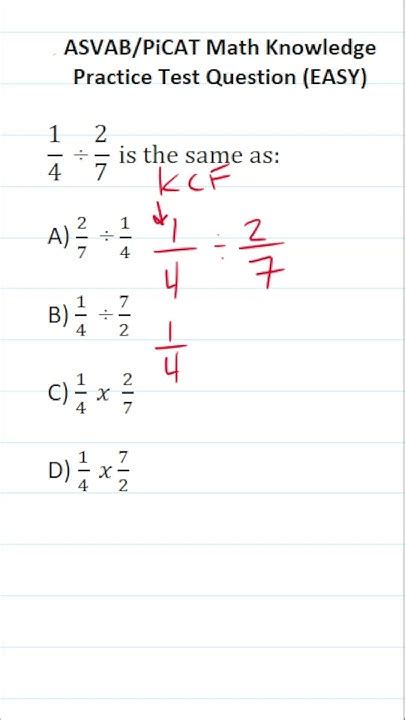 ASVAB/PiCAT Math Knowledge
Practice Test Question (EASY)
1/4 ÷ 2/7 is the same as:
KCF
A) 2/7 ÷ 1/4
1/4 ÷ 2/7
B) 1/4 ÷ 7/2
1/4
C) 1/4 x 2/7
D) 1/4 x 7/2